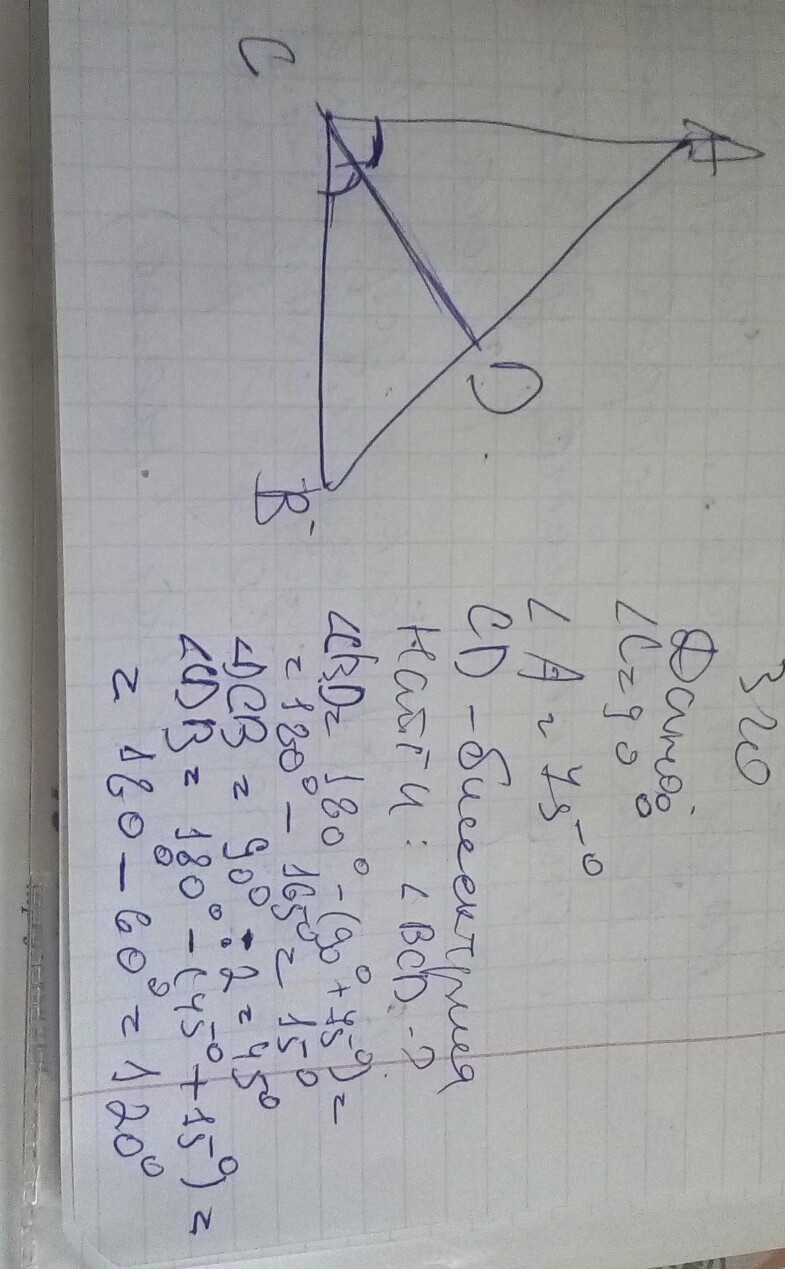 320
A
C
D
B
Дано:
∠C=90°
∠A=75°
CD-биссектриса
Найти: ∠BCD-?
∠CBD=180°-(90°+75°)=
=180°-165°=15°
∠DCB=90°:2=45°
∠CDB=180°-(45°+15°)=
=180°-60°=120°